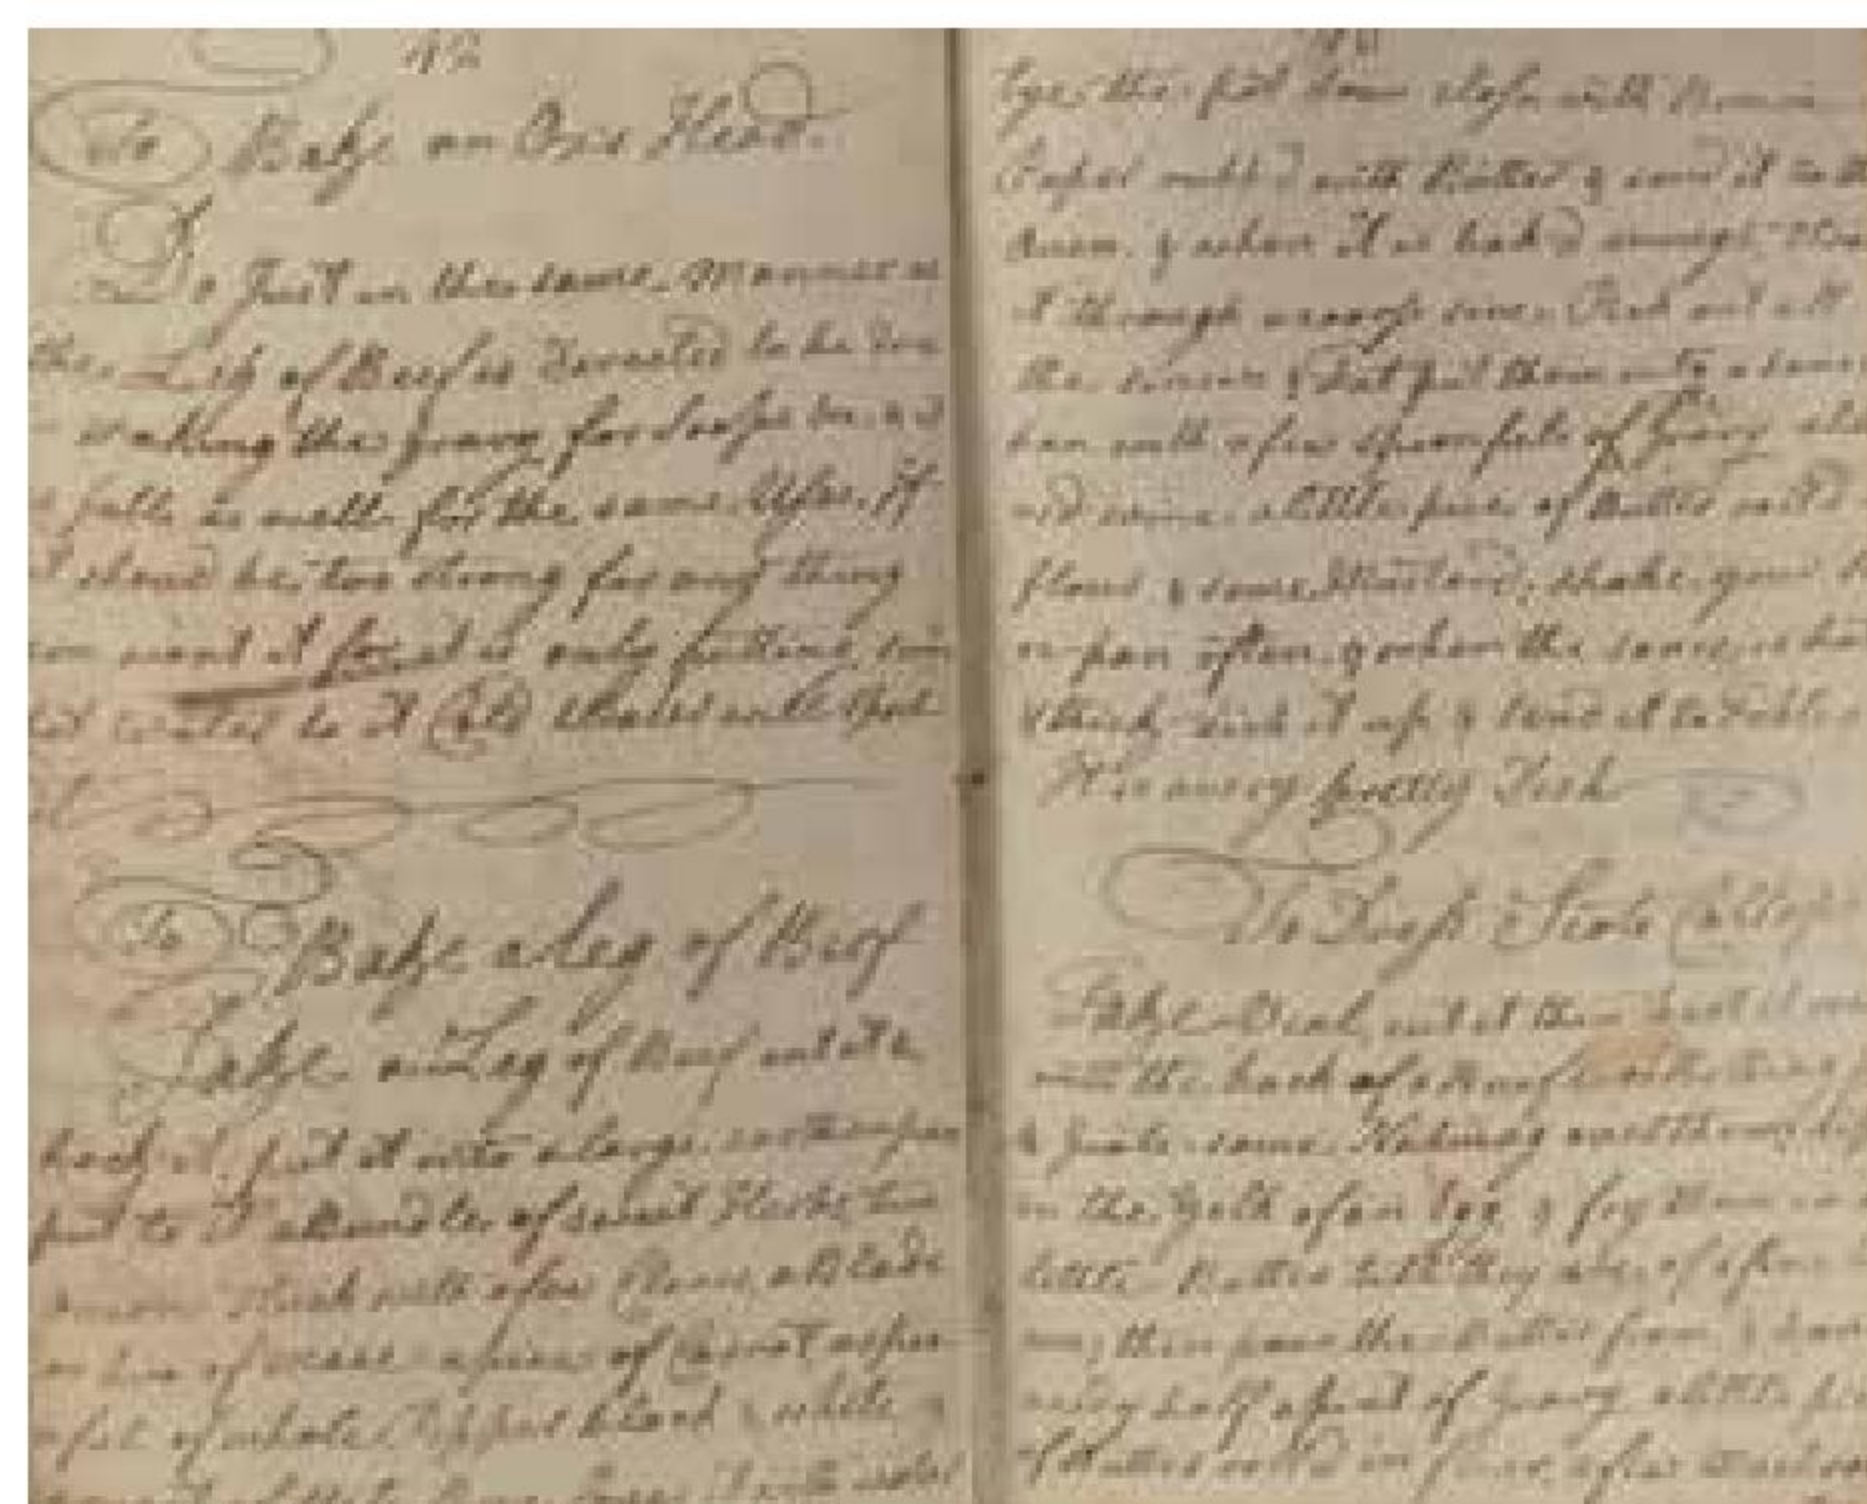 To Bake an Oxes Head.
Do Just in the same Manner as
the Leg of Beef is Directed to be don
making the gravy for Soops &c. & it
full as well for the same Use. If
it shoud be too strong for any thing
you want it for it is only putting som
hot water to it Cold Water will spoil
it
To Bake a Leg of Beef
Take a Leg of Beef cut it &
hack it, put it into a large earthen pan
put to it a Bundle of sweet Herbs two
onions Stuck with a few Cloves, a Blade
or two of mace a piece of Carrot a spoon
full of whole Pepper black & white &
tye the pot down close with Brown
Paper rubb'd with Butter & send it to the
Oven. & when it is bak'd enough
it through a coarse sive. Pick out all
the sinews & Fat put them into a sauce
pan with a few spoonfuls of Gravy
red wine. a little piece of Butter roll'd
flour & some Mustard, shake your
pan often & when the sauce is hot
& thick dish it up & send it to Table
It is a very pretty Dish
To Dress Scots Collops
Take Veal, cut it thin beat it
with the back of a Knife
& grate some Nutmeg over them, dip
in the Yolk of an Egg & fry them in a
little Butter till they are of a fine
then pour the Butter from &
half a pint of gravy a little
of Butter roll'd in flour, a few